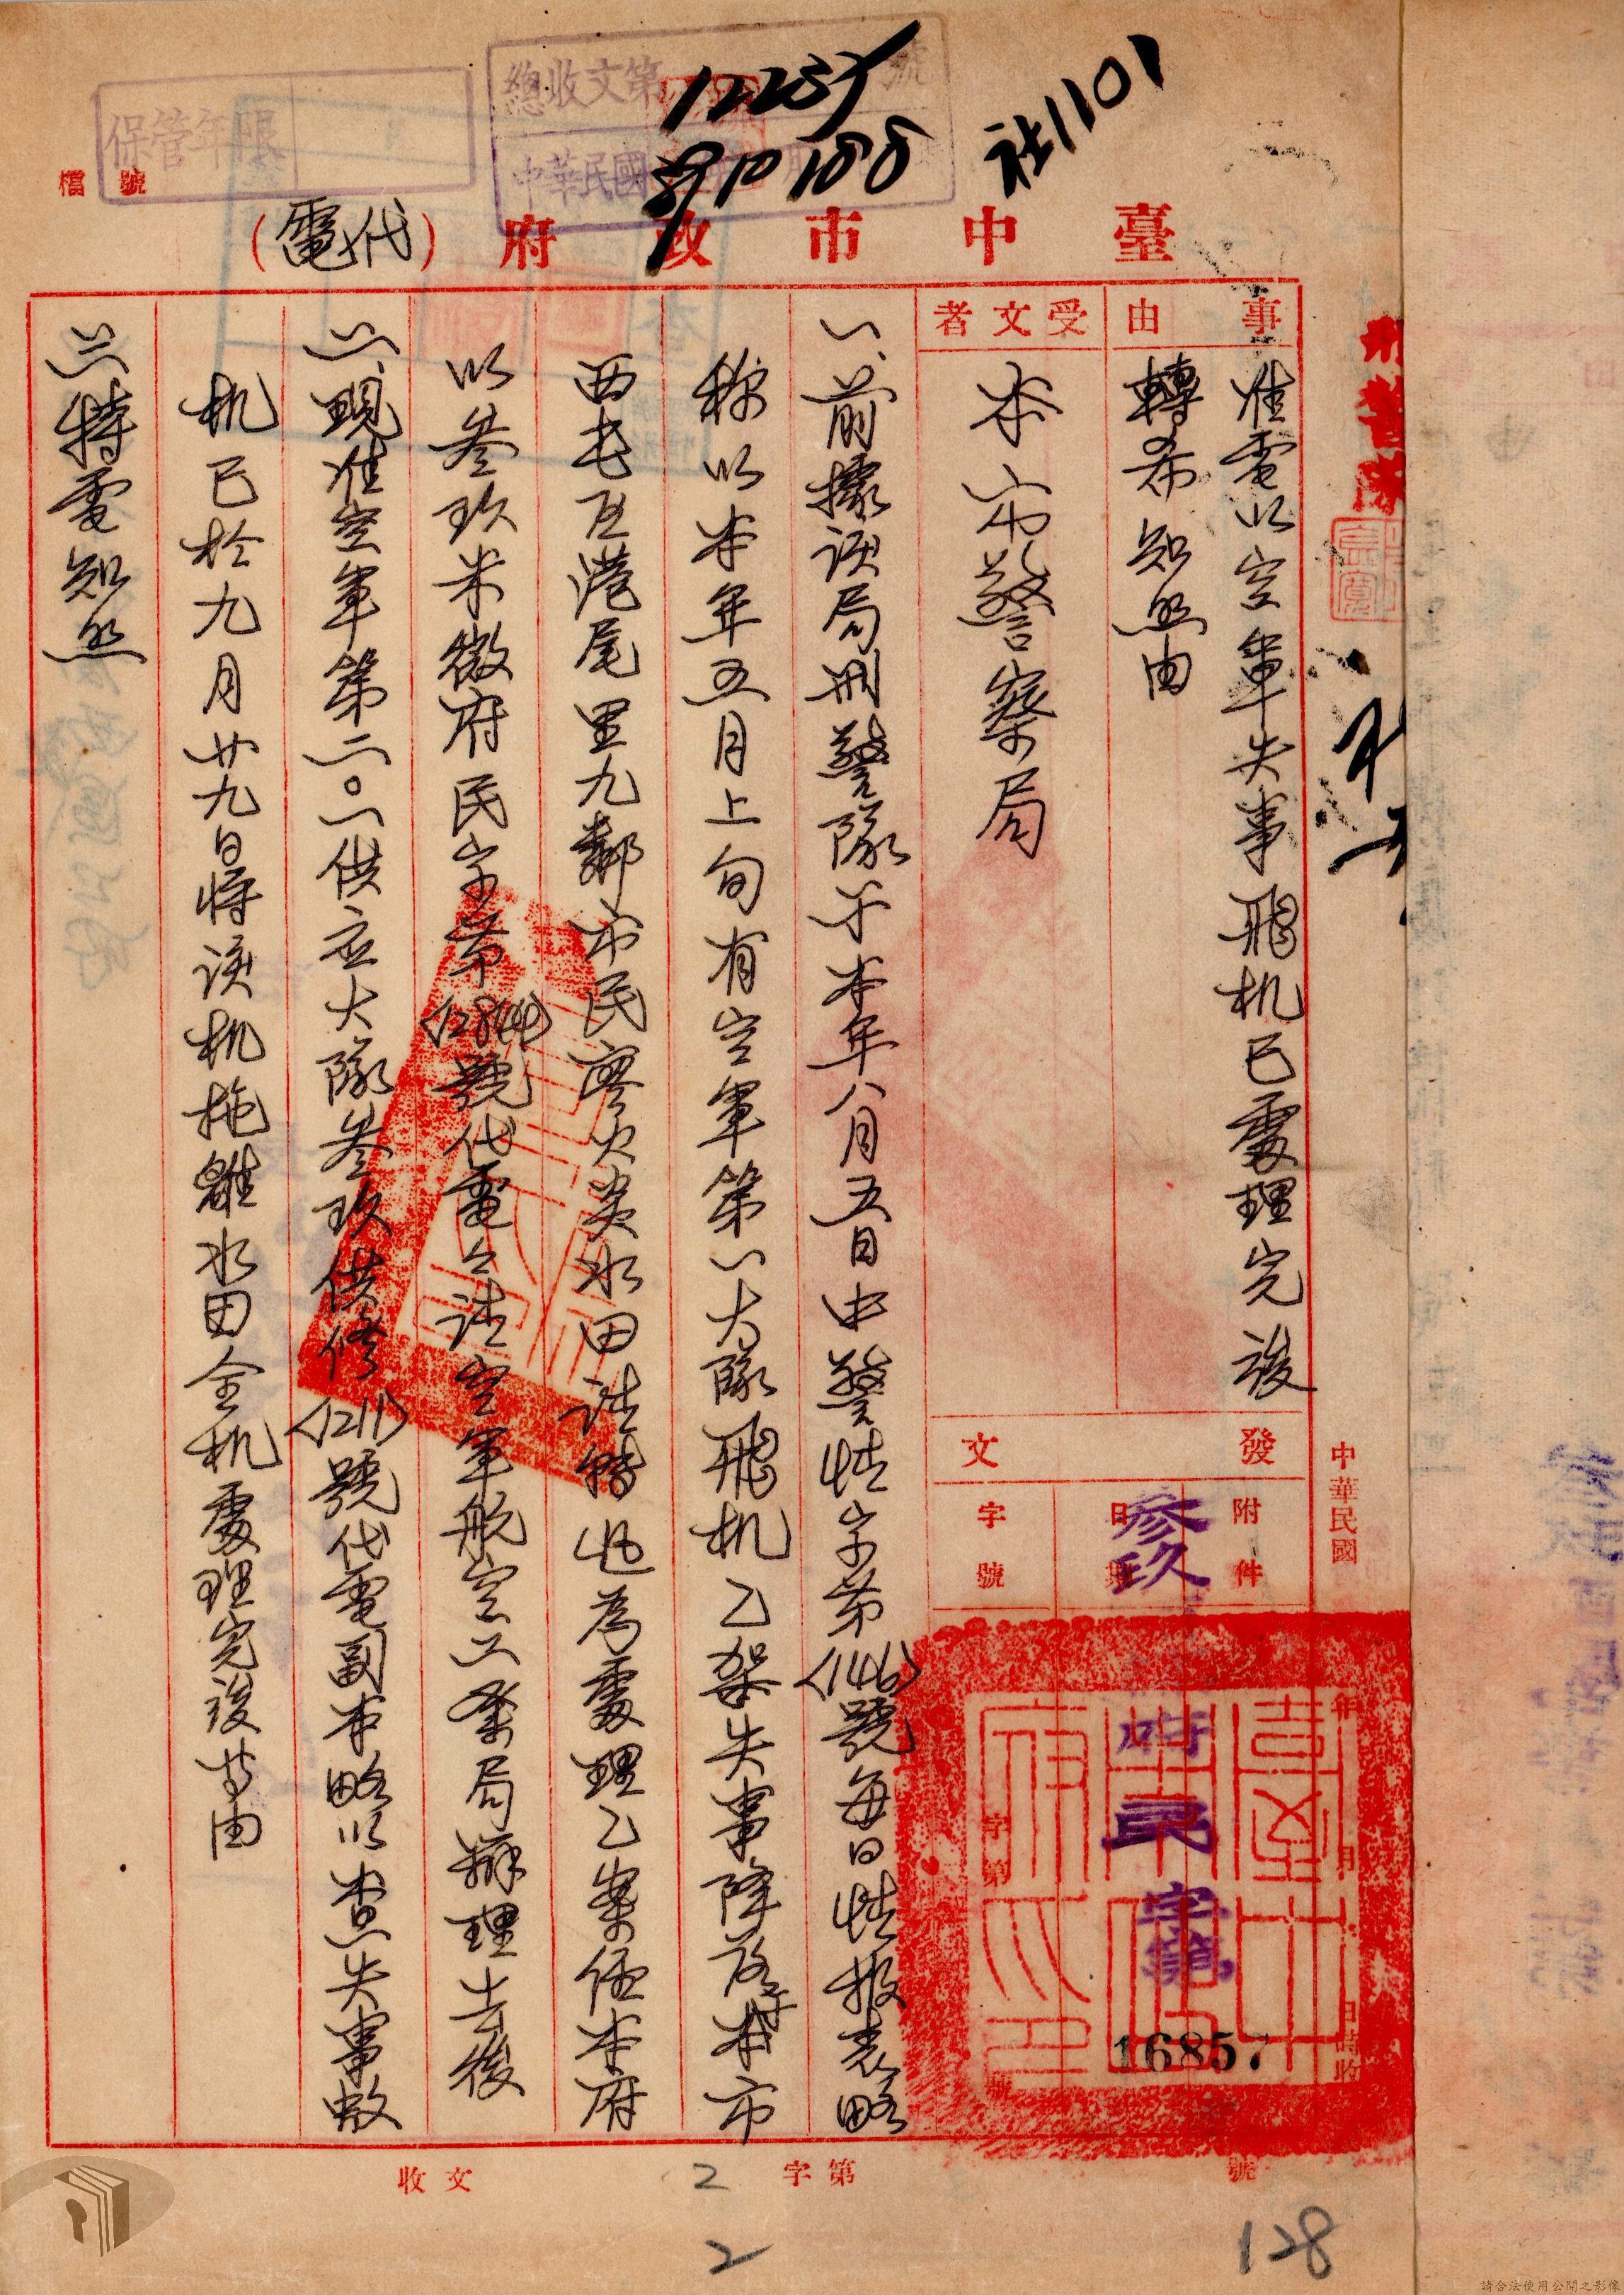 總收文第 號
12237
保管年限
檔 號
社1101
臺中市政府(代電)
事由
准電以空軍失事飛机已處理完後
轉希知照由
受文者
本市警察局
發文
附件
日期
字號
參玖
中華民國 年 月 日 時收
府民字第
16857
字第 號
一、前據該局刑警隊于本年八月五日中警情字第(146)號每日情报表略
称以本年五月上旬有空軍第一大隊飛机乙架失事降落于本市
西屯区港尾里九鄰市民廖火炎水田請轉 為處理乙案經本府
以叁玖米微府民字第(12844)號代電公請空軍航空工業局辦理去後
二、現准空軍第二〇一供应大隊叁玖供修(1211)號代電副本略以查失事敝
机已於九月廿九日將該机拖離水田全机處理完後等由
三、特電知照
收文 字第 號
2
2
128
請合法使用公開之影像